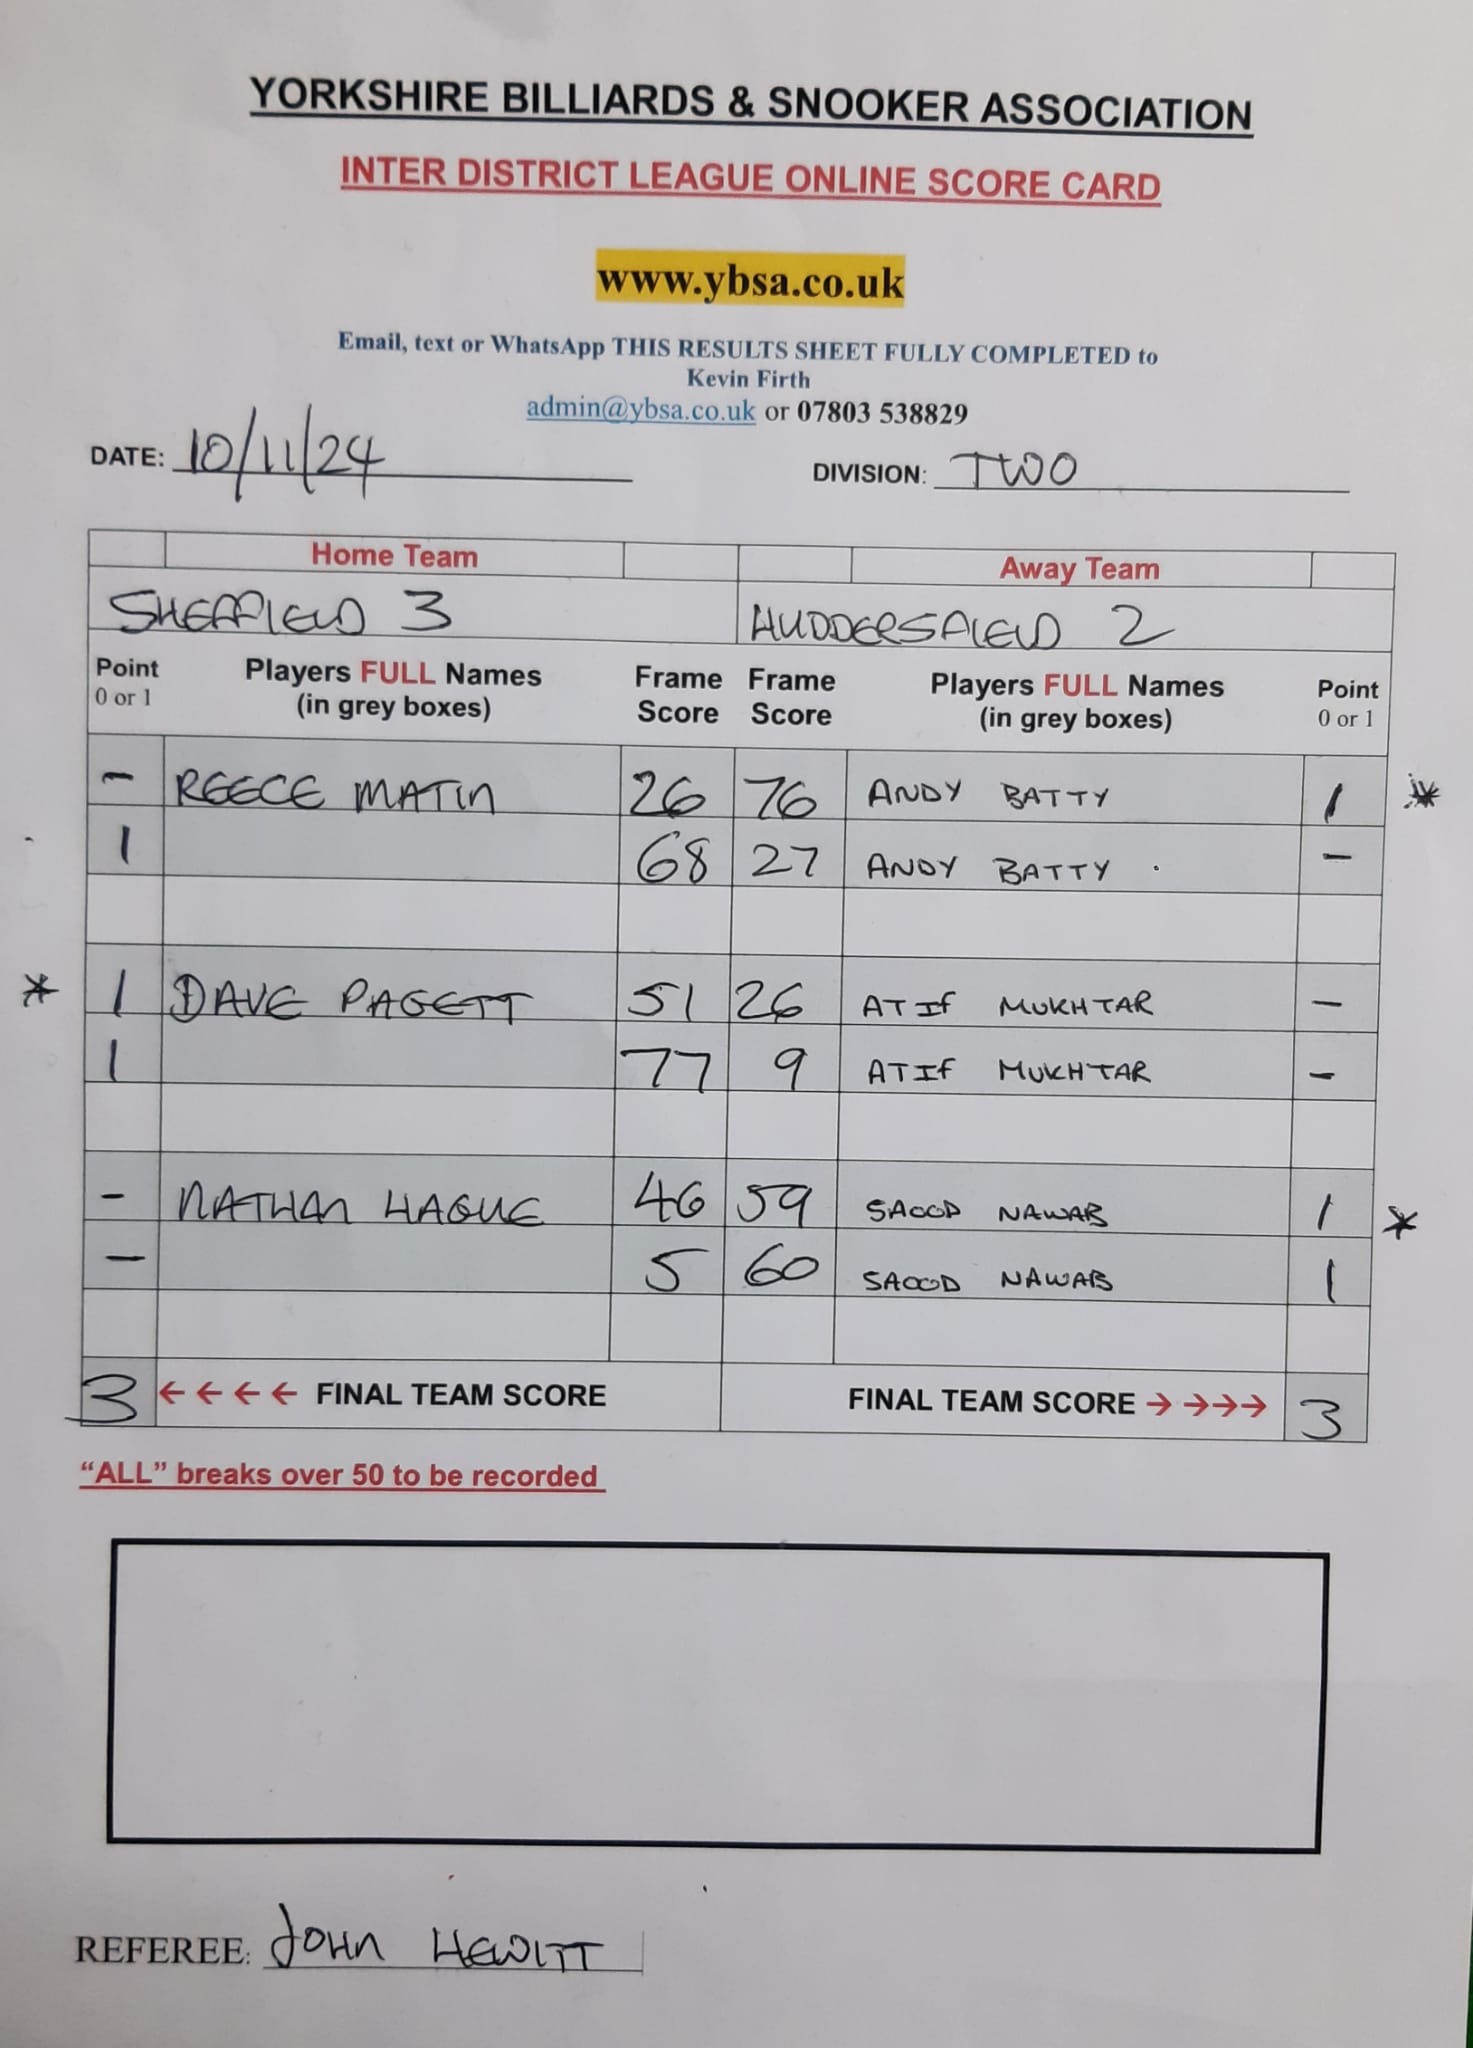 YORKSHIRE BILLIARDS & SNOOKER ASSOCIATION
INTER DISTRICT LEAGUE ONLINE SCORE CARD
www.ybsa.co.uk
Email, text or WhatsApp THIS RESULTS SHEET FULLY COMPLETED to
Kevin Firth
admin@ybsa.co.uk or 07803 538829
DATE: 10/11/24 DIVISION: TWO
Home Team Away Team
SHEFFIELD 3 HUDDERSFIELD 2
Point Players FULL Names Frame Frame Players FULL Names Point
0 or 1 (in grey boxes) Score Score (in grey boxes) 0 or 1
- REECE MATIN 26 76 ANDY BATTY 1 *
1 68 27 ANDY BATTY -
* 1 DAVE PAGETT 51 26 ATIF MUKHTAR -
1 77 9 ATIF MUKHTAR -
- NATHAN HAGUE 46 59 SAOOD NAWAB 1 *
- 5 60 SAOOD NAWAB 1
3 ←←←← FINAL TEAM SCORE FINAL TEAM SCORE →→→→ 3
“ALL” breaks over 50 to be recorded
REFEREE: JOHN HEWITT